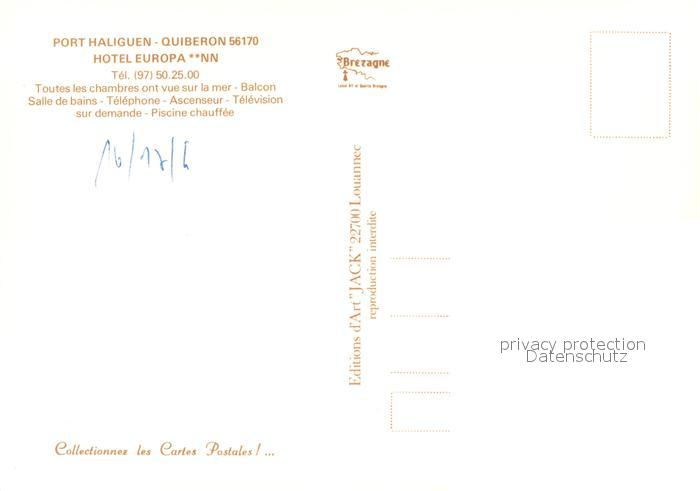 PORT HALIGUEN - QUIBERON 56170
HOTEL EUROPA **NN
Tél. (97) 50.25.00
Toutes les chambres ont vue sur la mer - Balcon
Salle de bains - Téléphone - Ascenseur - Télévision
sur demande - Piscine chauffée
Bretagne
Label Art et Qualité Bretagne
Editions d'Art "JACK" 22700 Louannec
reproduction interdite
privacy protection
Datenschutz
Collectionnez les Cartes Postales ! ...